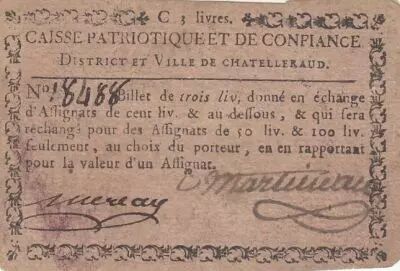 C 3 livres.
CAISSE PATRIOTIQUE ET DE CONFIANCE
DISTRICT ET VILLE DE CHATELLERAUD.
No. 18488 Billet de trois liv, donné en échange
d'Assignats de cent liv. & au dessous, & qui sera
rechangé pour des Assignats de 50 liv. & 100 liv.
seulement, au choix du porteur, en en rapportant
pour la valeur d'un Assignat.
Martineau